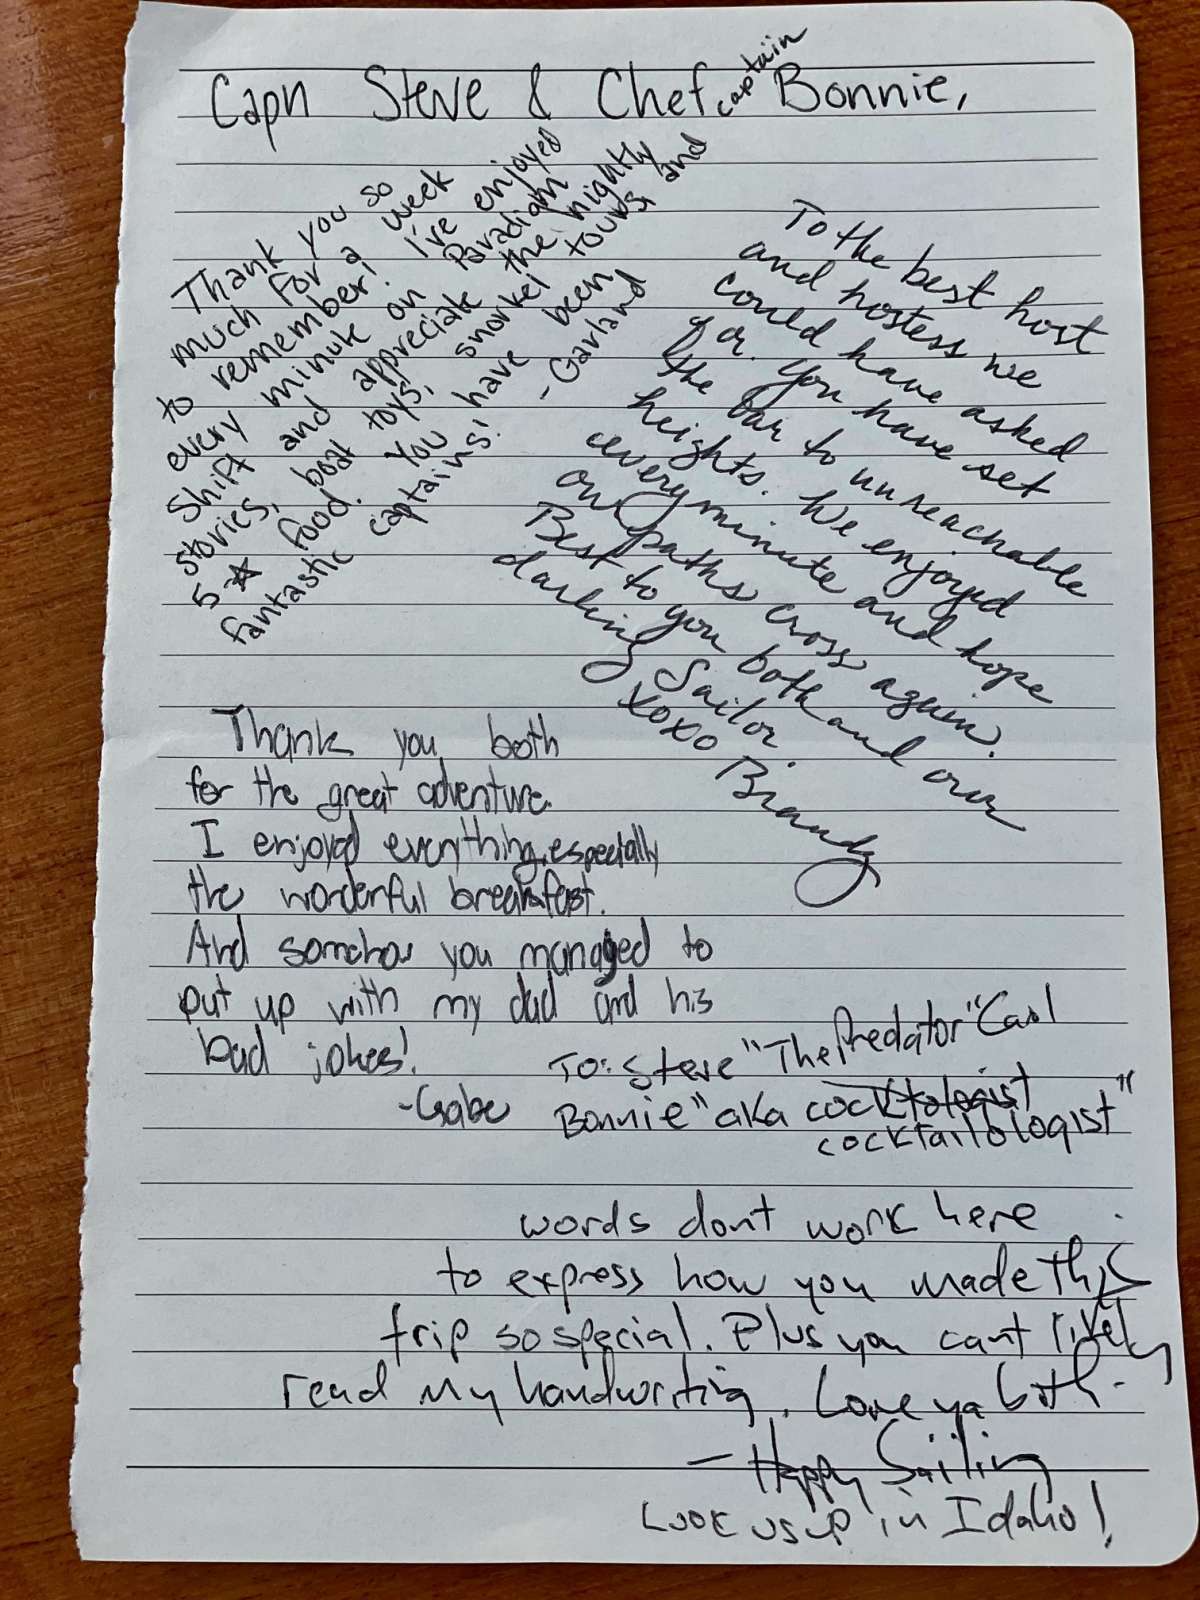 Capn Steve & Chef captain Bonnie,
Thank you so
much for a week
to remember! I've enjoyed
every minute on Paradigm
Shift and appreciate the nightly
stories, boat toys, snorkel tours, and
5 ☆ food. You have been
fantastic captains!
- Garland
To the best host
and hostess we
could have asked
for. You have set
the bar to unreachable
heights. We enjoyed
every minute and hope
our paths cross again.
Best to you both and our
darling Sailor.
XOXO
Brandy
Thank you both
for the great adventure.
I enjoyed everything, especially
the wonderful breakfast.
And somehow you managed to
put up with my dad and his
bad jokes!
-Gabe
To: Steve "The Predator" Carl
Bonnie "aka cocktologist
cocktailologist"
words dont work here
to express how you made this
trip so special. Plus you cant
read my handwriting. Love ya both-
- Happy Sailing
Look us up in Idaho!